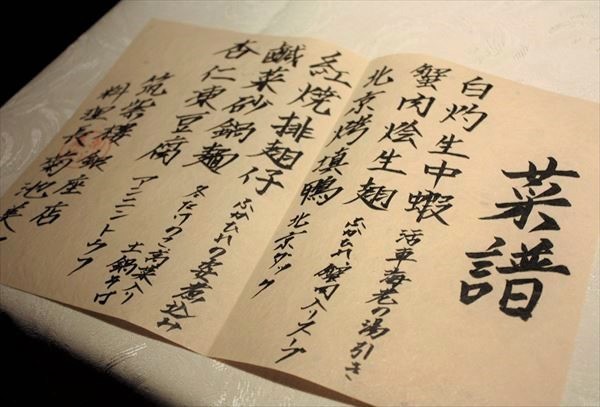 菜譜
白灼生中蝦
活車海老の湯引き
蟹肉燴生翅
ふかひれ蟹肉入りスープ
北京烤填鴨
北京ダック
紅焼排翅仔
ふかひれの姿煮込み
鹹菜砂鍋麺
冬たけのこ高菜入り
土鍋そば
杏仁東豆腐
アンニントウフ
筑紫樓銀座店
料理長菊池